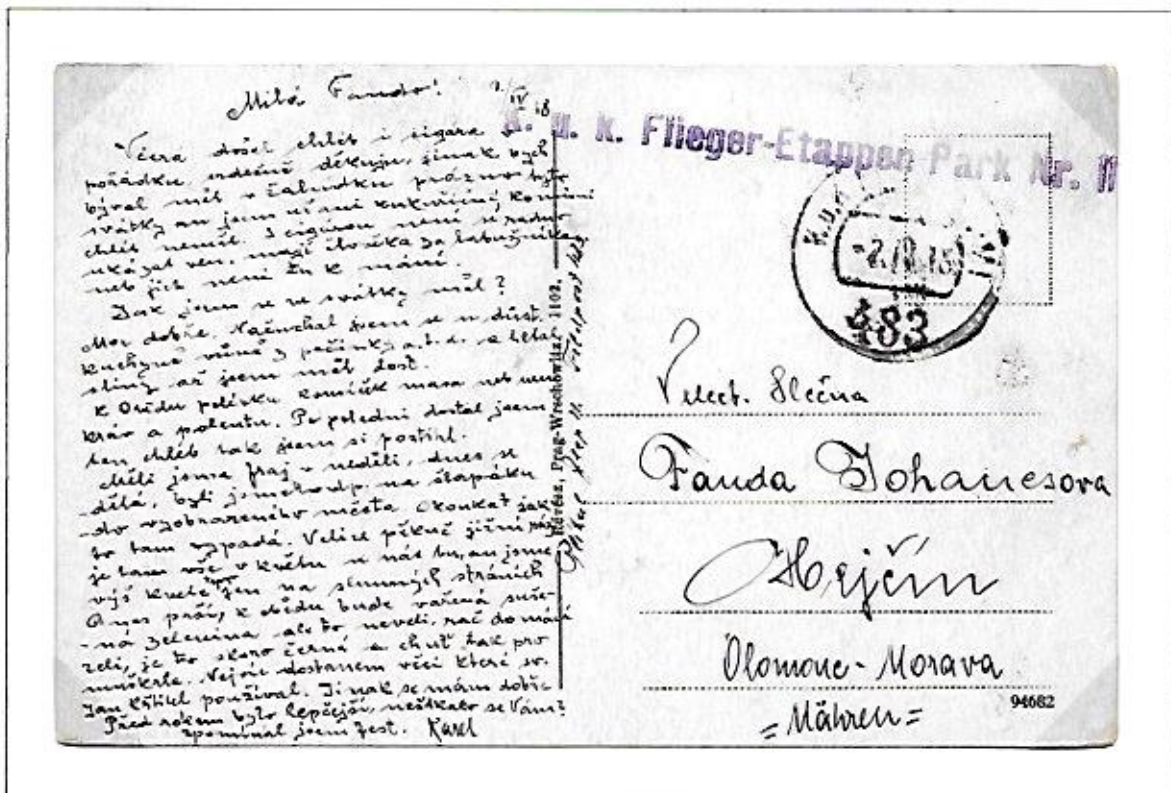 Milá Fando! 1/IV 18
Včera došel chléb i cigára v
pořádku, srdečně děkuju, jinak bych
býval měl v žaludku prázno byly
svátky an jsem už ani kukuřičný
chléb neměl. S cigárou není radno
ukázat ven, mají člověka za
neb jich není zu k mání.
Jak jsem se ve svátky měl?
Moc dobře. Načuchal jsem se u důst.
kuchyně vůně z pečínky a.t.d. a
až jsem měl dost.
K Obědu polévku kousíček masa neb
a polentu. Po poledni dostal jsem
ten chléb tak jsem si postihl.
Měli jsme fraj v neděli, dnes se
dělá, byli jsme odp. na šlapáku
do vyobrazeného města Okoukat jak
to tam vypadá. Velice pěkné jižní
je tam vše v květu u nás tu, an jsme
výš kvete jen na slunných stráních
O nas prší, k obědu bude vařená suše-
-ná zelenina ale to nevdi, rač do
zelí, je to skoro černá a chuť tak pro
Nejvíc dostanem věcí které sv.
Jan Křtitel používal. Jinak se mám dobře
Před rokem bylo lepčejší, neštkalo se Vám?
zpomínal jsem žest. Karel
Prag-Wrschowitz 1102.
K. u. k. Flieger-Etappen-Park Nr. 11
483
Velect. Slečna
Fanda Johanesova
Hejčín
Olomouc - Morava
= Mähren =
94682